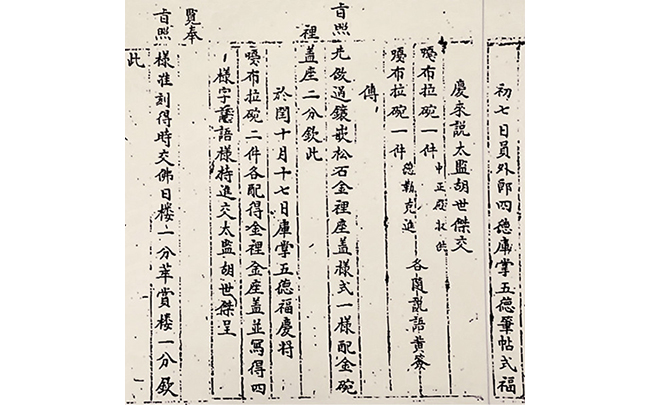 初七日員外郎四德庫掌五德筆帖式福
慶來說太監胡世傑交
嘎布拉碗一件 中正殿收供
嘎布拉碗一件 德勒克進 各隨説語黃簽
傳
旨照先做過鑲嵌松石金裡座蓋樣式一樣配金碗
裡蓋座二分欽此
於閏十月十七日庫掌五德福慶將
嘎布拉碗二件各配得金裡金座蓋並寫得四
樣字語樣持進交太監胡世傑呈
覽奉
旨照樣准刻得時交佛日楼一分萃賞楼一分欽
此